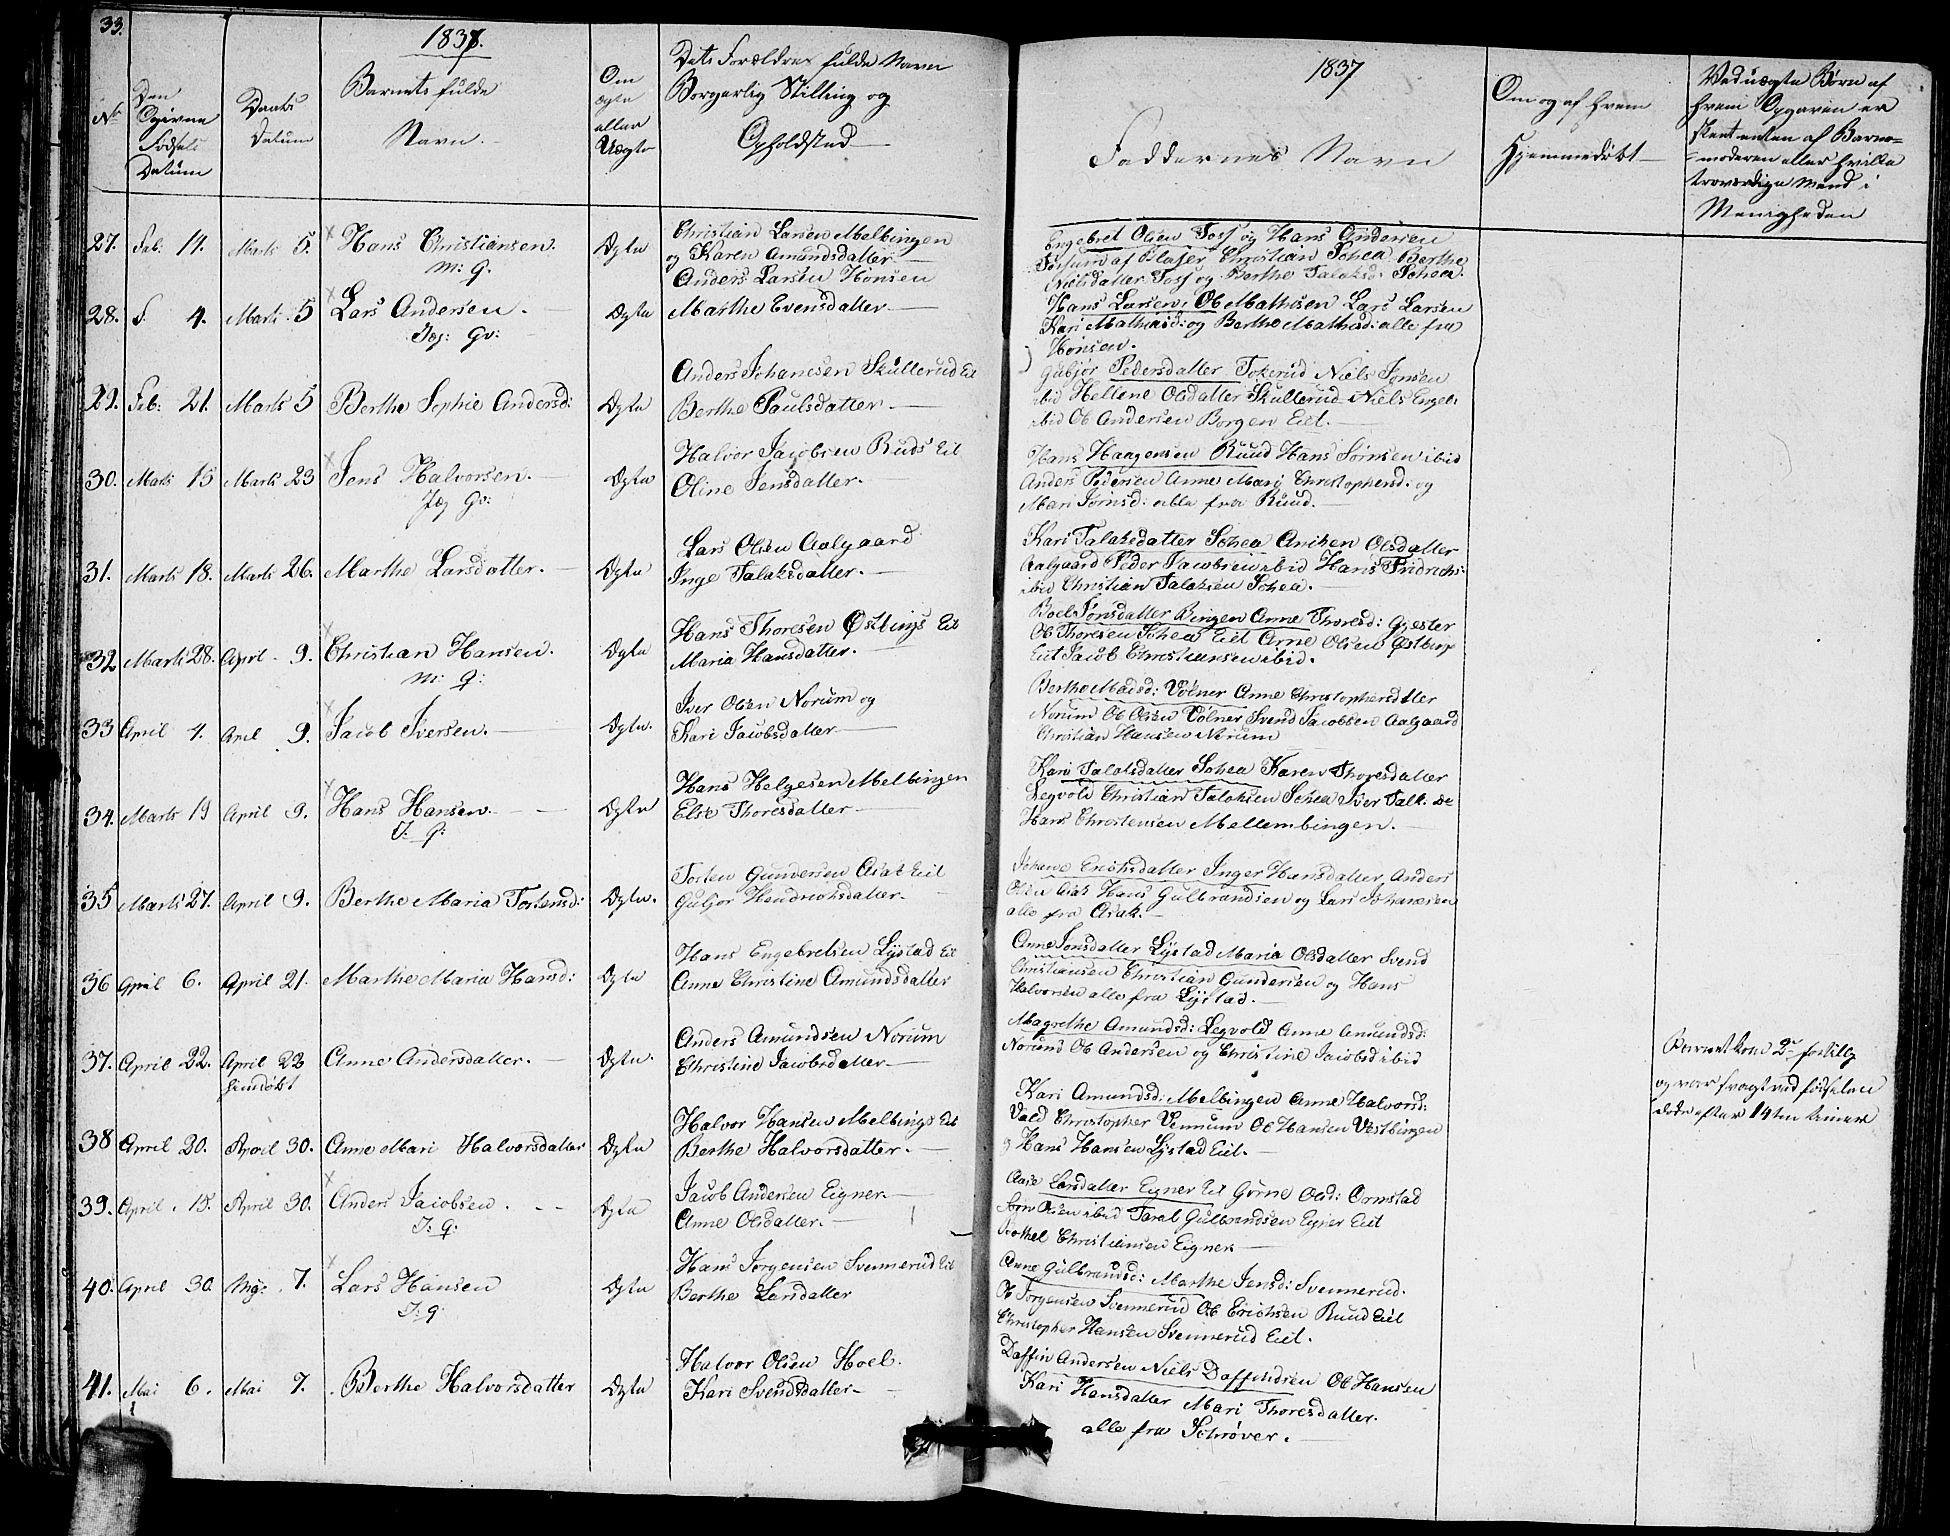 33.
1837.
No
Den
Opivne
Fødsels
Datum
Daabs
Datum
Barnets fulde
Navn.
Om
ægte
eller
Uægte
Dets Forældres fulde Navn
Borgerlig Stilling og
Opholdsted
1837
Faddernes Navn
Om og af hvem
Hjemmedøbt
Ved uægte Børn af
hvem Opgaven er
skeet enten af Barne-
moderen eller hvilke
troværdige Mænd i
Menigheden
27. Feb. 11. Marts 5. Hans Christiansen. Ægte
m: g.
Christian Larsen Melbingen
og Karen Amundsdatter
Engebret Olsen Foss og Hans Andersen
Fossum af Christian Schea Berthe
Nielsdatter Foss og Berthe Talaksd: Schea.
28. F. 4. Marts 5 Lars Andersen. Ægte
Jæg: Gv:
Anders Larsen Hønsen
Marthe Evensdatter
Hans Larsen, Ob Mathisen Lars Larsen
Kari Mathisd: og Berthe Mathisd: alle fra
Hønsen.
29. Feb: 21. Marts 5 Berthe Sophie Andersd: Ægte
Anders Johanesen Skullerud Eit
Berthe Paulsdatter.
Gubjør Pedersdatter Tokerud Niels Jonsen
ibid Hellene Olsdatter Skullerud Niels Engeb.
ibid Ob Andersen Borgen Eit.
30. Marts 15 Marts 23 Jens Halvorsen. Ægte
Jæg Gv:
Halvor Jacobsen Ruds Eit
Oline Jensdatter.
Hans Haagensen Ruud Hans Sørnsen ibid
Anders Pedersen Anne Marj Christophersd: og
Mari Jørnsd: alle fra Ruud.
31. Marts 18. Marts 26. Marthe Larsdatter. Ægte
Lars Olsen Aalgaard
Inge Talaksdatter.
Kari Talaksdatter Schea Aniken Olsdatter
Aalgaard Peder Jacobsen ibid Hans Fridrichs:
ibid Christian Talaksen Schea.
32 Marts 28. April 9. Christian Hansen. Ægte
m: g:
Hans Thoresen Østbings Eit
Maria Hansdatter.
Boel Jonsdatter Bingen Anne Thoresd: Gjester
Ob Thoresen Schea Eiet Arne Olsen Østbing
Eiet Jacob Christiansen ibid.
33 April 4. April 9. Jacob Iversen. Ægte.
Iver Olsen Norum og
Kari Jacobsdatter
Berthe Madsd: Vølner Anne Christophersdatter
Norum Ob Olsen Vølner Svend Jacobsen Aalgaard
Christian Hansen Norum
34. Marts 19 April 9. Hans Hansen. Ægte
J: G:
Hans Helgesen Melbingen
Else Thoresdatter
Kari Talaksdatter Schea Karen Thoresdatter
Legvold Christian Talaksen Schea Iver Talk. de
Hans Christensen Mellembingen.
35 Marts 27. April 9. Berthe Maria Tostensd: Ægte.
Tosten Gundersen Asak Eiet
Gubjør Hendrichsdatter.
Johane Erichsdatter Inger Hansdatter, Anders
Olsen Asak Hans Gulbrandsen og Lars Johanesen
alle fra Asak.
36 April 6. April 21. Marthe Maria Hansd: Ægte
Hans Engebretsen Lystad Eit
Anne Christine Amundsdatter
Anne Jonsdatter Lystad Maria Olsdatter Svend
Christiansen Christian Gundersen og Hans
Halvorsen alle fra Lystad.
37. April 22. April 23 Anne Andersdatter. Ægte.
hjemdøbt
Anders Amundsen Norum
Christine Jacobsdatter
Magrethe Amundsd: Legvold Anne Amundsd:
Norund Ob Andersen og Christine Jacobsd ibid
Barnet kom 2r fortilig
og var svagt ved fødselen
døde efter 14ten timer
38 April 20. April 30. Anne Mari Halvorsdatter Ægte
Halvor Hansen Melbings Eit
Berthe Halvorsdatter.
Kari Amundsd: Melbingen Anne Halvorsd:
Vald Christopher Vennum Ob Hansen Vestbingen
og Hans Hansen Lystad Eiet.
39. April 15. April 30. Anders Jacobsen. Ægte
J: G:
Jacob Andersen Eigner.
Anne Olsdatter.
Aase Larsdatter Eyner Eit Gørne Olsd: Ornstad
Jørn Olsen ibid Taral Gulbrandsen Eyner Eiet
Christiansen Eigner
40. April 30. Mai 7. Lars Hansen Ægte
J: g:
Hans Jørgensen Svennerud Eit
Berthe Larsdatter
Anne Gulbrandsd: Marthe Jensd: Svennerud.
Ob Jorgensen Svennerud Ob Erichsen Ruud Eiet
Christopher Hansen Svennerud Eiet.
41. Mai 6. Mai 7. Berthe Halvorsdatter Ægte
Halvor Olsen Hoel.
Kari Svendsdatter
Daffin Andersen Niels Daffindsen Ob Hansen
Kari Hansdatter Mari Thoresdatter.
alle fra Schrøver.